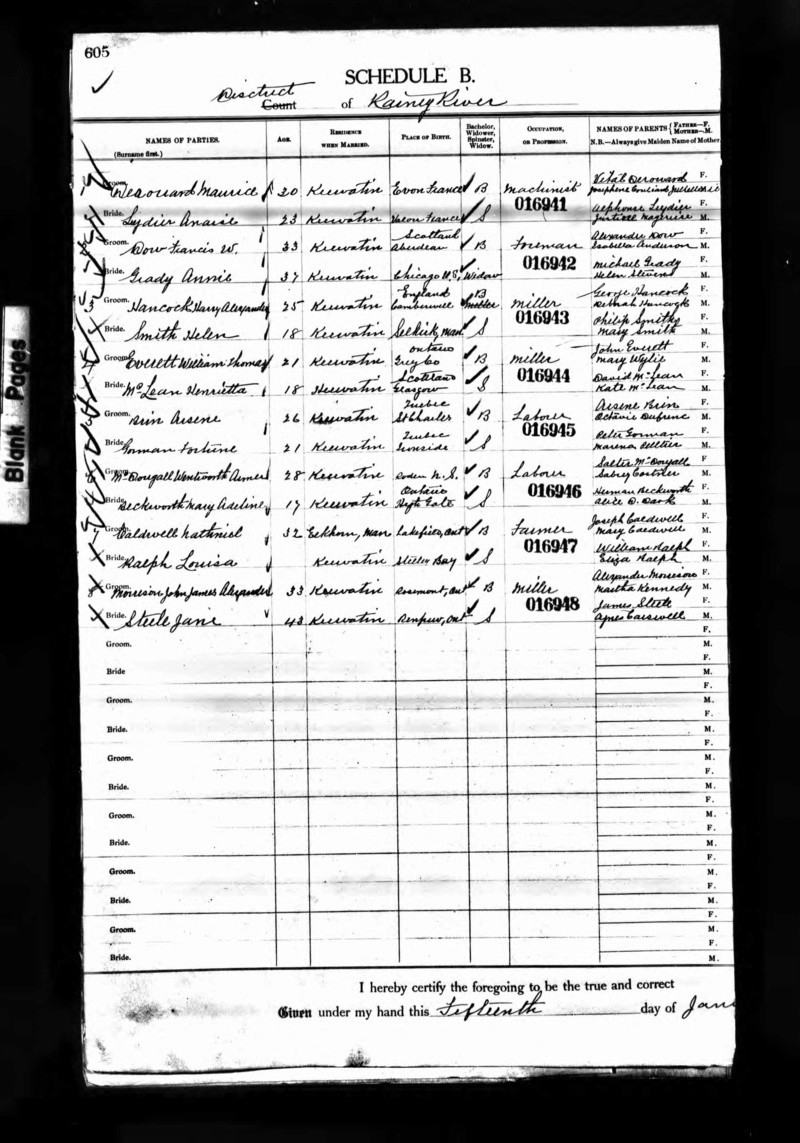 605
SCHEDULE B.
District
Count of Rainy River
NAMES OF PARTIES.
(Surname first.)
AGE.
RESIDENCE
WHEN MARRIED.
PLACE OF BIRTH.
Bachelor,
Widower,
Spinster,
Widow.
OCCUPATION,
OR PROFESSION.
NAMES OF PARENTS { FATHER—F.
MOTHER—M.
N.B.—Always give Maiden Name of Mother
Groom. Maurice 20 Keewatin France B Machinist Vital F.
Josephine
016941
Bride. Lydier Anaise 23 Keewatin France S Alphonse Lydier F.
M.
Scotland
Groom. Dow Francis W. 33 Keewatin Aberdean B Foreman Alexander Dow F.
Isabella Anderson M.
016942
Bride. Grady Annie 37 Keewatin Chicago U.S. Widow Michael Grady F.
Helen Stevens M.
England
Groom. Hancock Harry Alexander 25 Keewatin Camberwell B Miller George Hancock F.
Hancock M.
016943
Bride. Smith Helen 18 Keewatin Selkirk, Man S Philip Smith F.
Mary Smith M.
Ontario
Groom. Everett William Thomas 21 Keewatin Grey Co B Miller John Everett F.
Mary Wylie M.
016944
Scotland
Bride. McLean Henrietta 18 Keewatin Glasgow S David McLean F.
Kate McLean M.
Quebec
Groom. Brin Arsene 26 Keewatin St Charles B Laborer Arsene Brin F.
Octavie Dufrene M.
016945
Quebec
Bride. Gorman Fortune 21 Keewatin Ironside S Peter Gorman F.
Pelltier M.
Groom. McDougall Wentworth 28 Keewatin N.S. B Laborer Salter McDougall F.
M.
016946
Ontario
Bride. Beckworth Mary Adeline 17 Keewatin Hyte Gate S Herman Beckworth F.
Alice D. Dark M.
Groom. Caldwell Nathniel 32 Man Lakefield, Ont B Farmer Joseph Caldwell F.
Mary Caldwell M.
016947
Bride. Ralph Louisa Keewatin Bay S William Ralph F.
Eliza Ralph M.
Groom. Morrison John James Alexander 33 Keewatin Rosemont, Ont B Miller Alexander Morrison F.
Martha Kennedy M.
016948
Bride. Steele Jane 43 Keewatin Renfrew, Ont S James Steele F.
Agnes Carswell M.
F.
Groom.
M.
F.
Bride
M.
F.
Groom.
M.
F.
Bride.
M.
F.
Groom.
M.
F.
Bride.
M.
F.
Groom.
M.
F.
Bride.
M.
F.
Groom.
M.
F.
Bride.
M.
F.
Groom.
M.
F.
Bride.
M.
I hereby certify the foregoing to be the true and correct
Given under my hand this Fifteenth day of Jan
Blank Pages